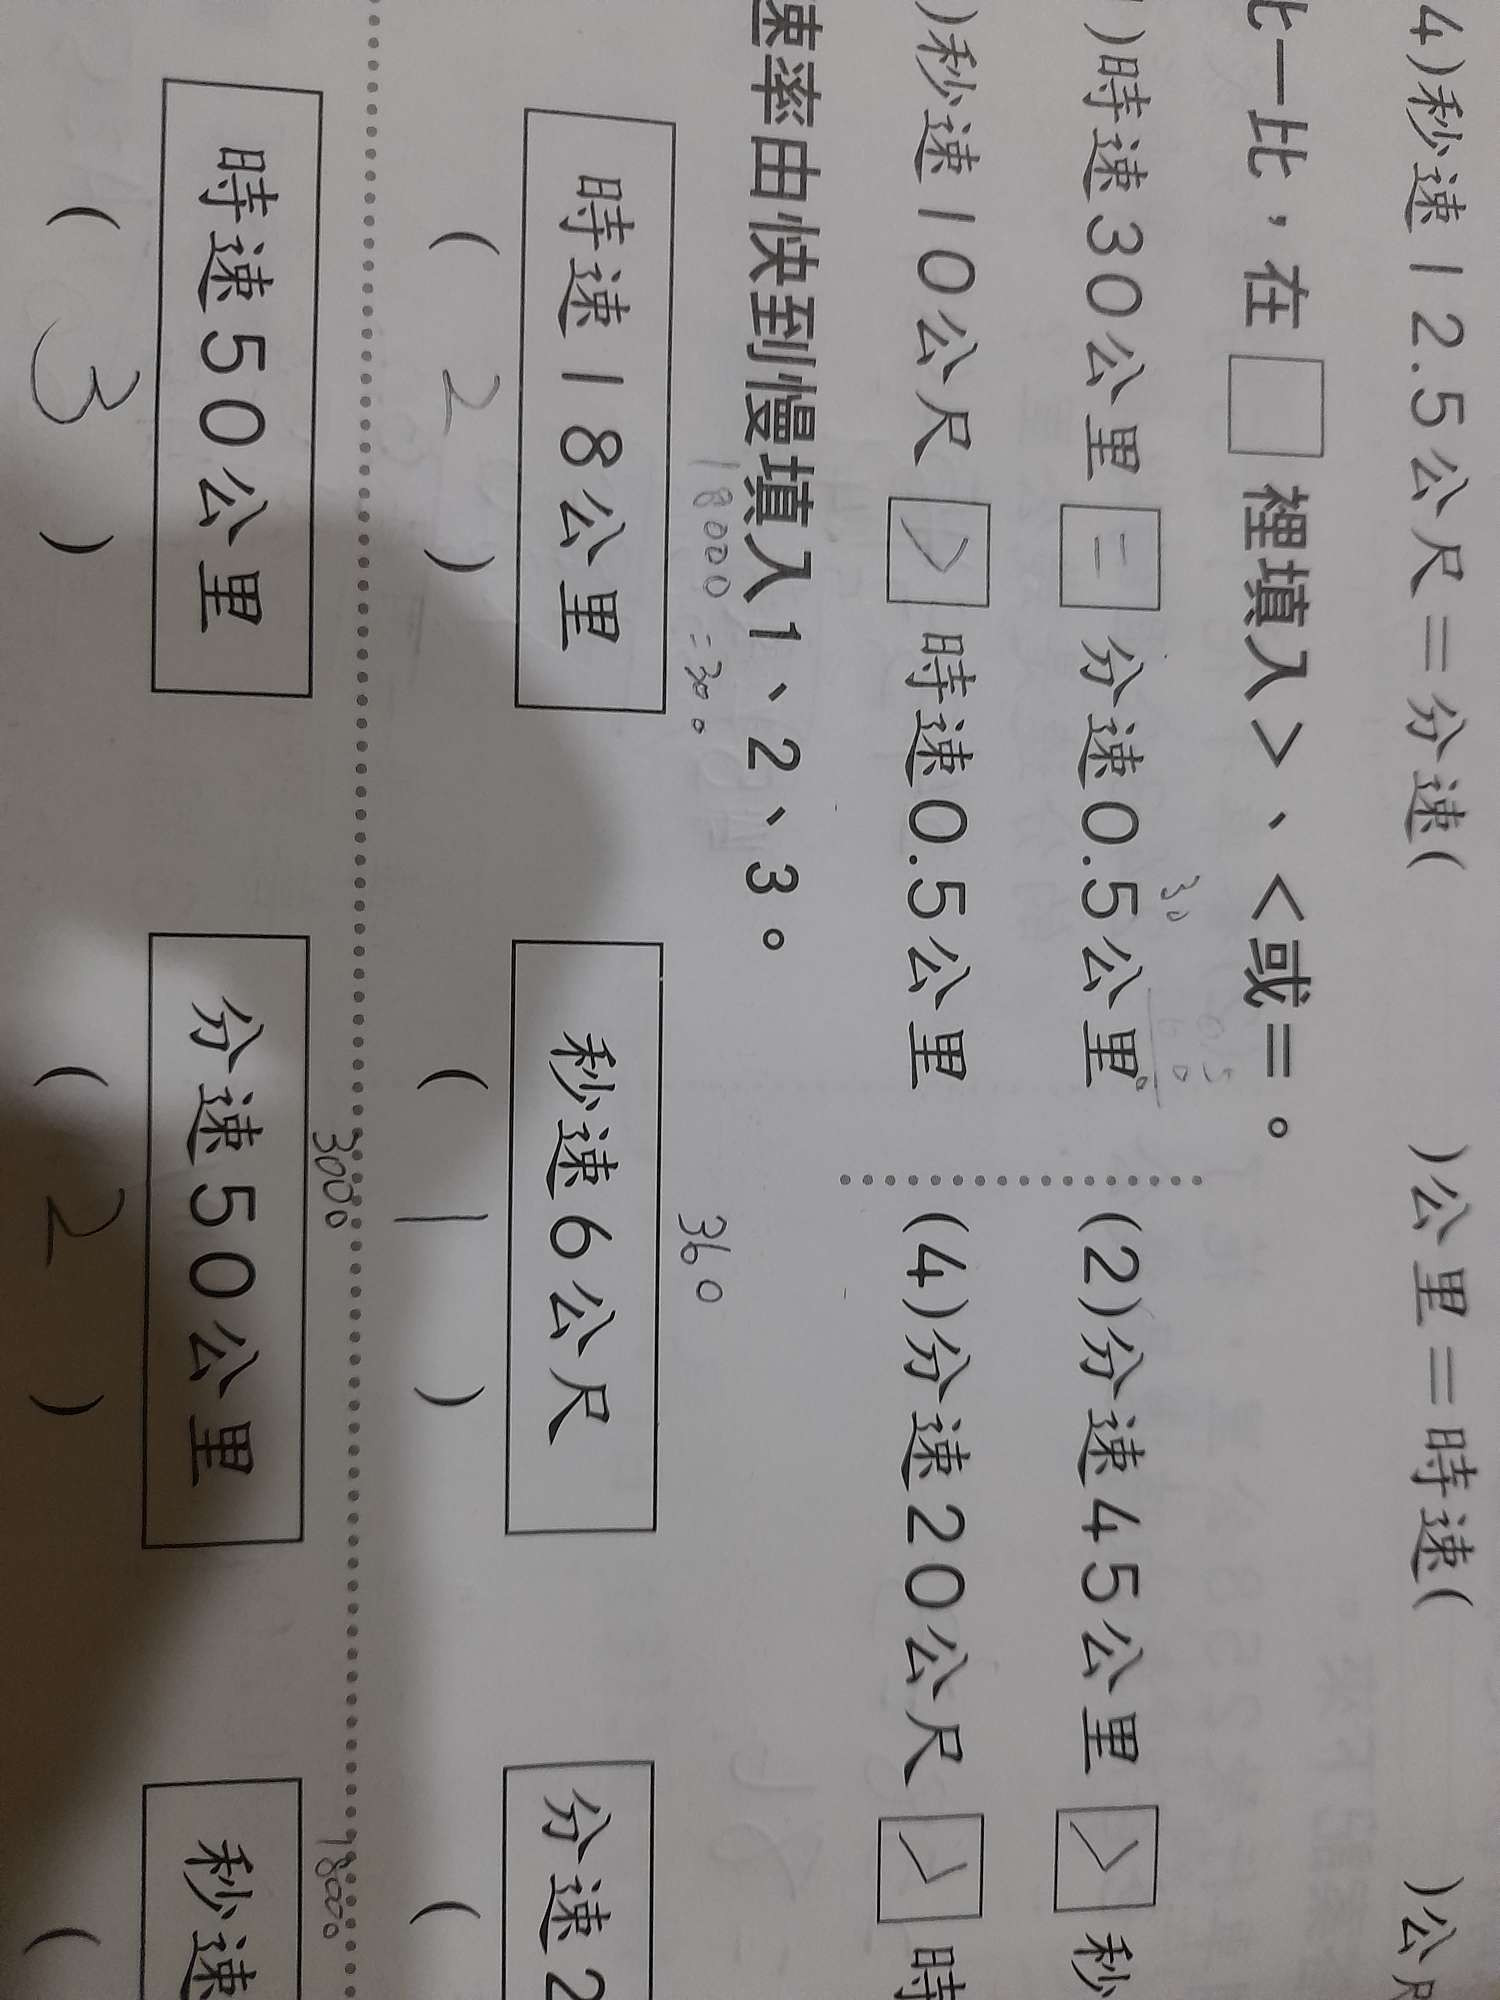 4)秒速12.5公尺=分速( )公里=時速( )公尺
比一比，在□裡填入>、<或=。
)時速30公里 = 分速0.5公里
30
0.5
60
(2)分速45公里 > 秒
)秒速10公尺 > 時速0.5公里
(4)分速20公尺 > 時
速率由快到慢填入1、2、3。
18000=300
360
時速18公里
秒速6公尺
分速2
( 2 )
( 1 )
(
3000
18000
時速50公里
分速50公里
秒速
( 3 )
( 2 )
(